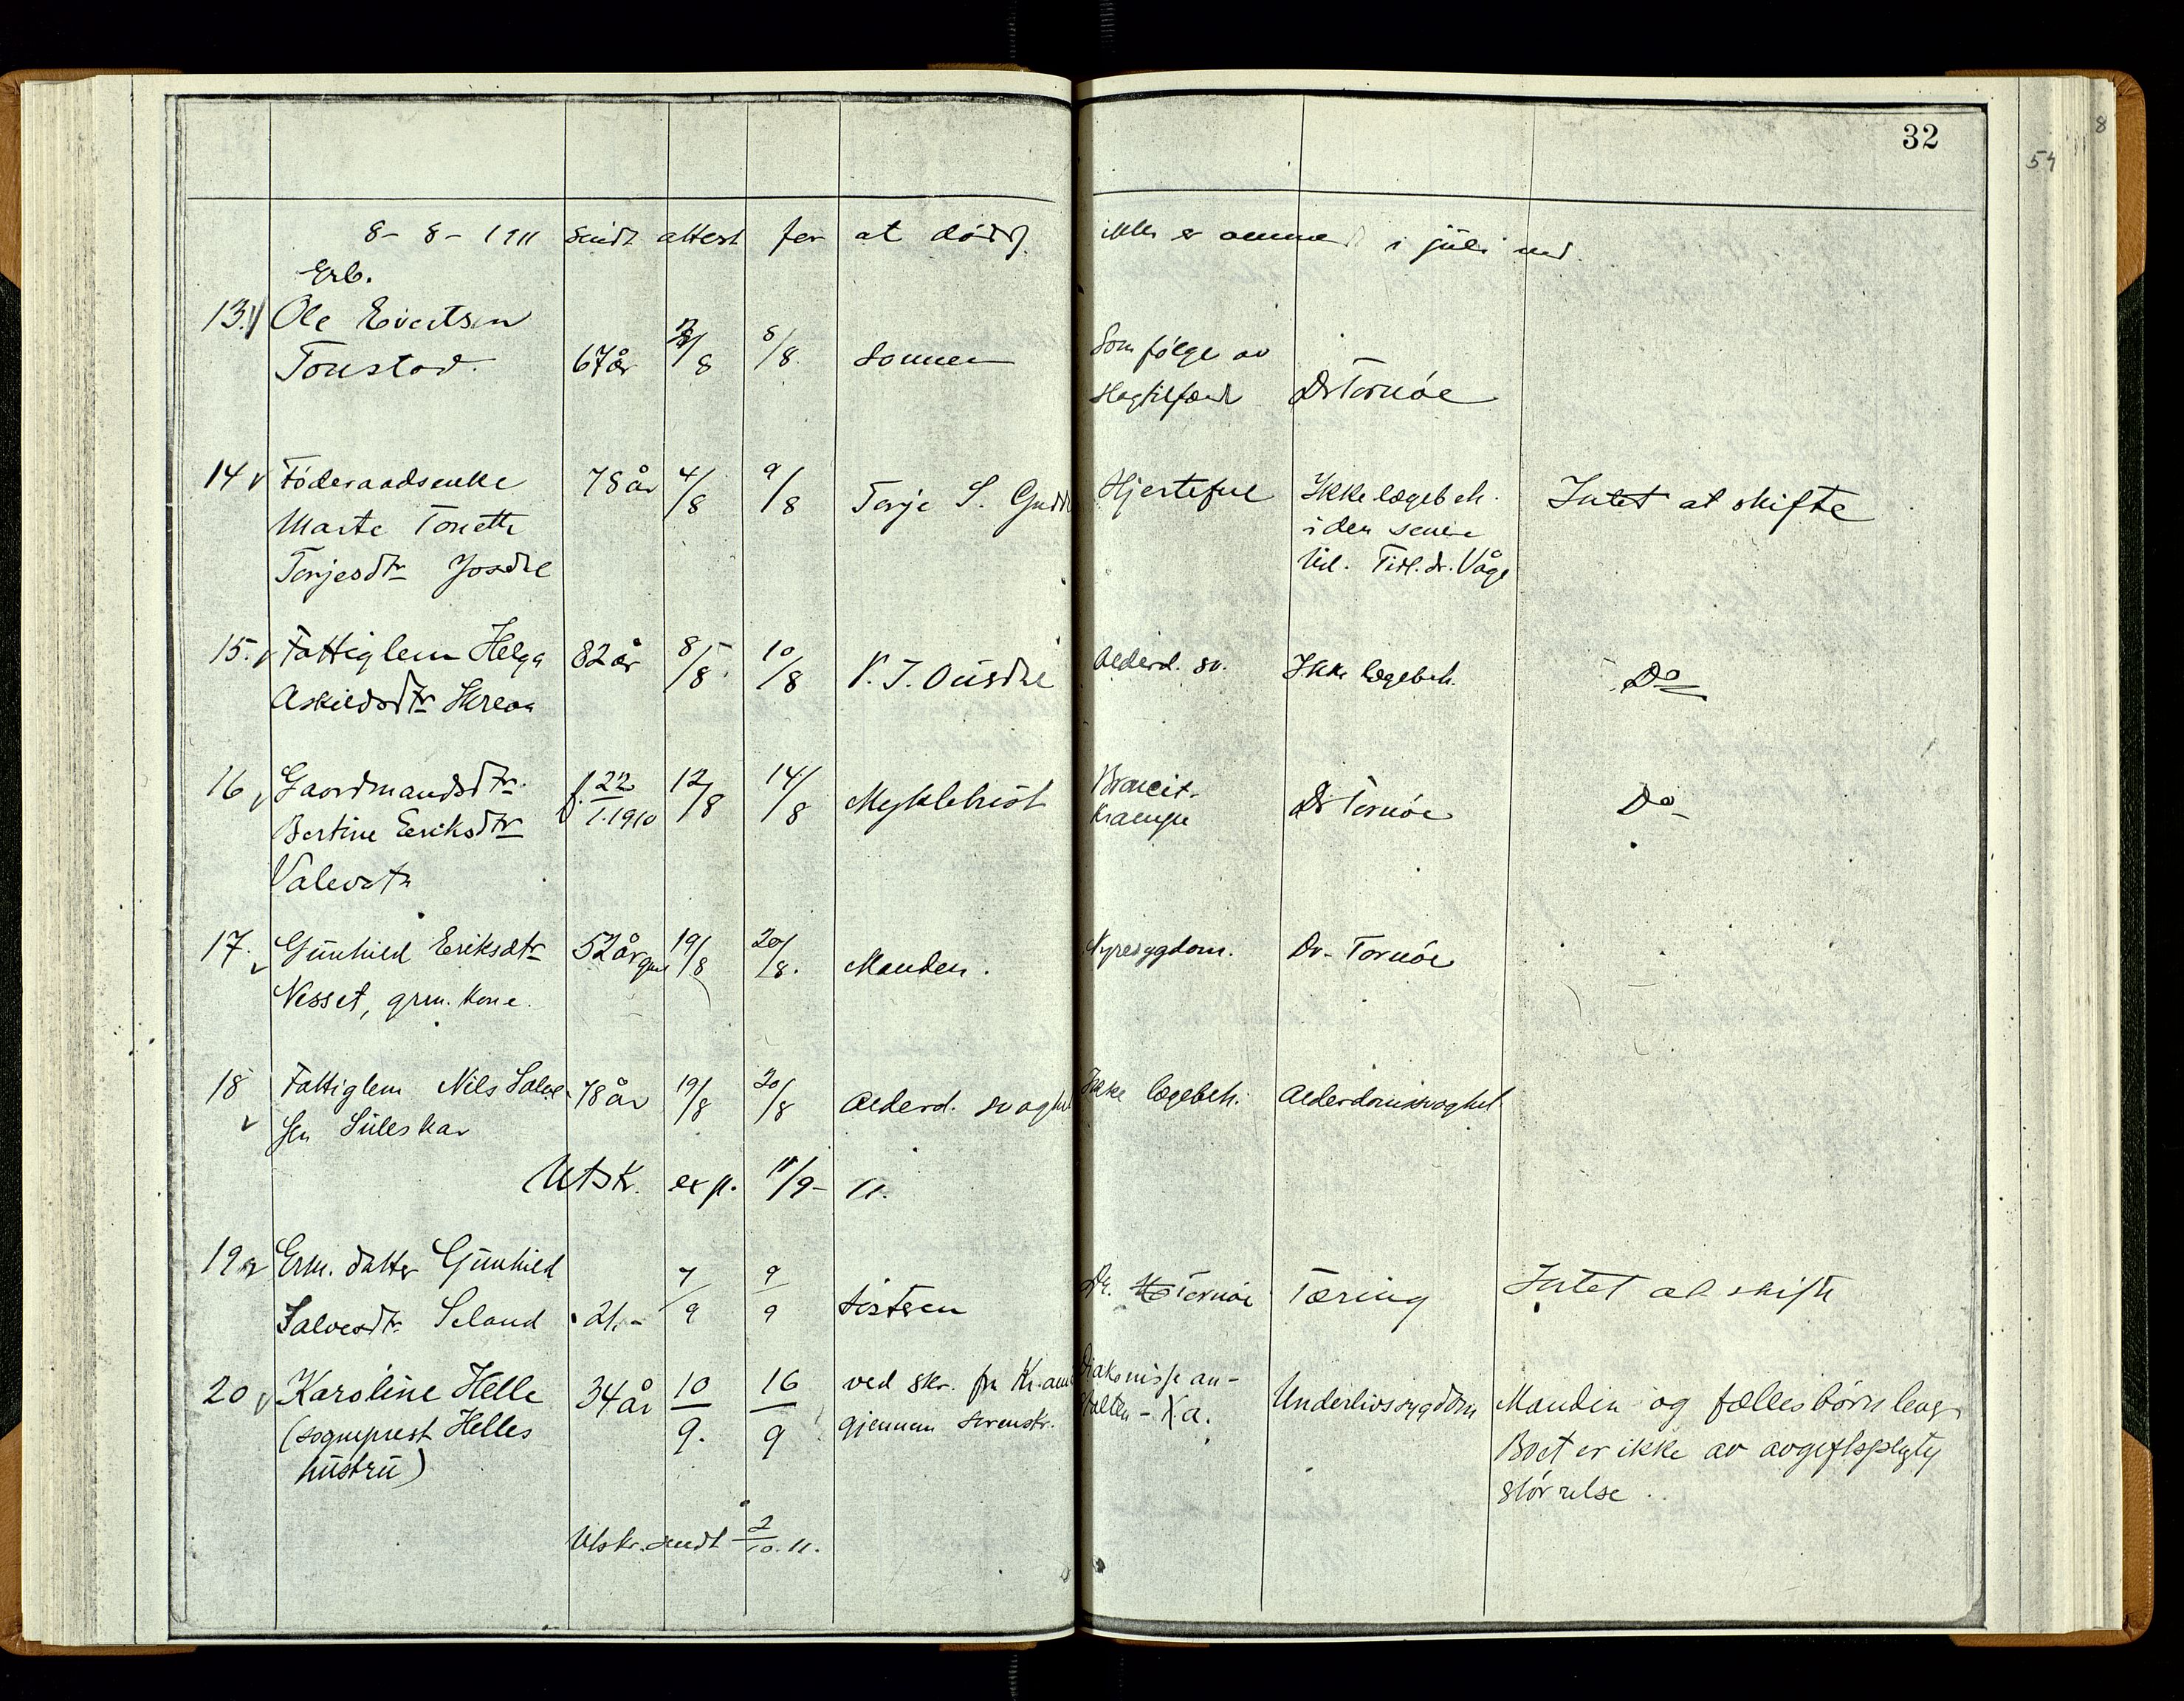 32
54
8
8 - 8 - 1911 sendt attest for at dödsf. ikke er anmeldt i juli md.
Erb.
13. Ole Eivertsen
Tonstad. 67 år /8 8/8. Sönnen Som følge av
slagtilfælde Dr Tornöe
14 Föderaadsenke 78 år 4/8 9/8 Terje S. Hjertefeil Ikke lægebeh. Intet at skifte
Marte Tonette i den senere
Terjesdtr Josdal tid. Tidl. dr. Våge
15. Fattiglem Helga 82 år 8/8 10/8 V. J. Ousdal Alderd. sv. Ikke lægebeh. Do
Askildsdtr
16 Gaardmandsdtr. f. 22/1. 1910 12/8 14/8 Myklebust Dr Tornöe Do
Bertine Eeriksdtr Krampe
Valevatn
17. Günhild Eriksdtr 52 år gml 19/8 20/8. Manden. Nyresygdom. Dr. Tornöe
Nesset, grm. kone.
18 Fattiglem Nils Salve- 78 år 19/8 20/8 Alderd. svaghet Ikke lægebeh. Alderdomssvaghet
sen Süleskar
Utsk. exp. 11/9 - 11.
19 Erm. datter Günhild
Salvesdtr. Seland 21. - 7/9 9/9 Søsteren Dr. Tornöe Tæring Intet at skifte
20 Karoline Helle 34 år 10/9. 16/9 ved skr. fra Kr.amt Diakonissean- Underlivssygdom Manden og fællesbörn leve
(sogneprest Helles gjennem sorenskr. stalten - Kra. Boet er ikke av avgiftspligtig
hüstrü) störrelse.
Utskr. sendt 2/10. 11.